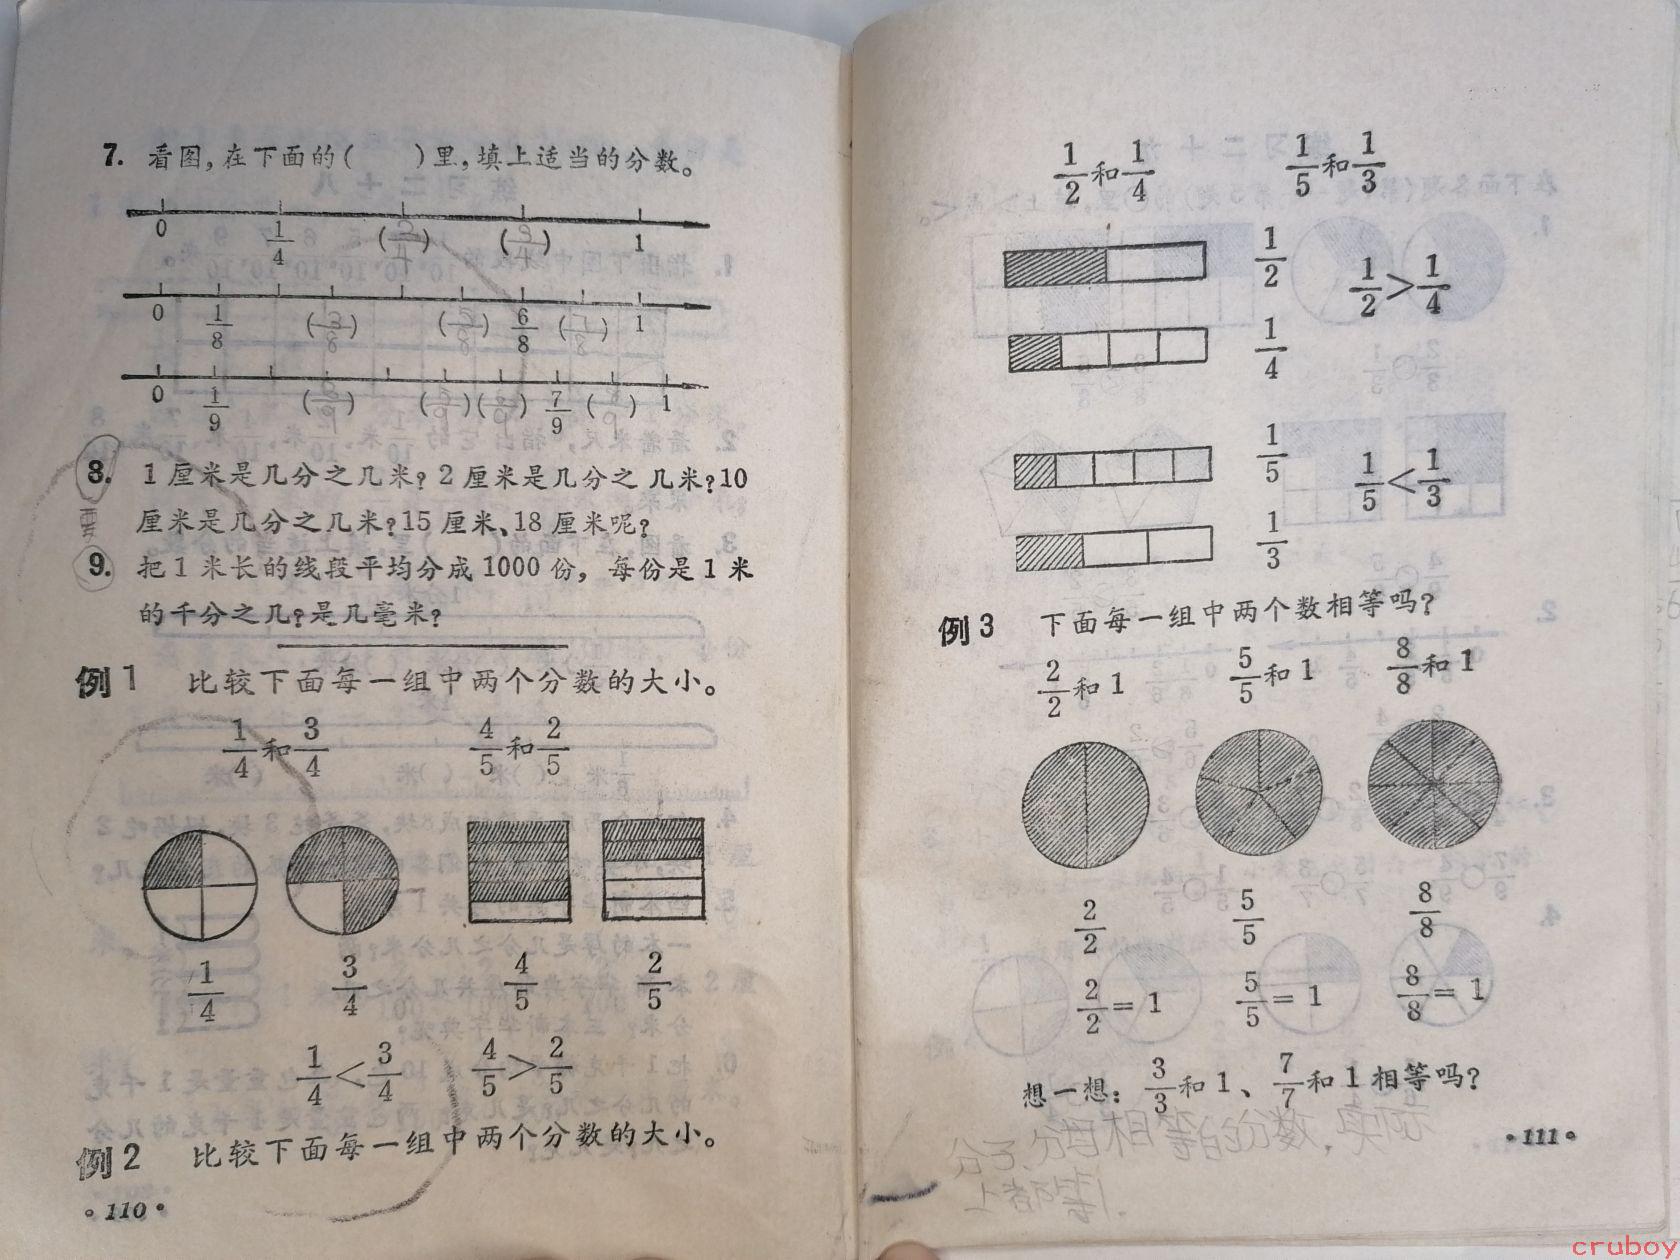 7. 看图,在下面的(　　)里,填上适当的分数。
0 1/4 (2/4) (3/4) 1
0 1/8 (3/8) (5/8) 6/8 (7/8) 1
0 1/9 ( ) ( ) ( ) 7/9 ( ) 1
8. 1厘米是几分之几米?2厘米是几分之几米?10
厘米是几分之几米?15厘米、18厘米呢?
9. 把1米长的线段平均分成1000份, 每份是1米
的千分之几?是几毫米?
例1 比较下面每一组中两个分数的大小。
1/4和3/4 4/5和2/5
1/4 3/4 4/5 2/5
1/4<3/4 4/5>2/5
例2 比较下面每一组中两个分数的大小。
·110·
1/2和1/4 1/5和1/3
1/2
1/2>1/4
1/4
1/5
1/5<1/3
1/3
例3 下面每一组中两个数相等吗?
2/2和1 5/5和1 8/8和1
2/2 5/5 8/8
2/2=1 5/5=1 8/8=1
想一想: 3/3和1、7/7和1相等吗?
分子、分母相等的分数,实际
上都等1.
·111·
cruboy